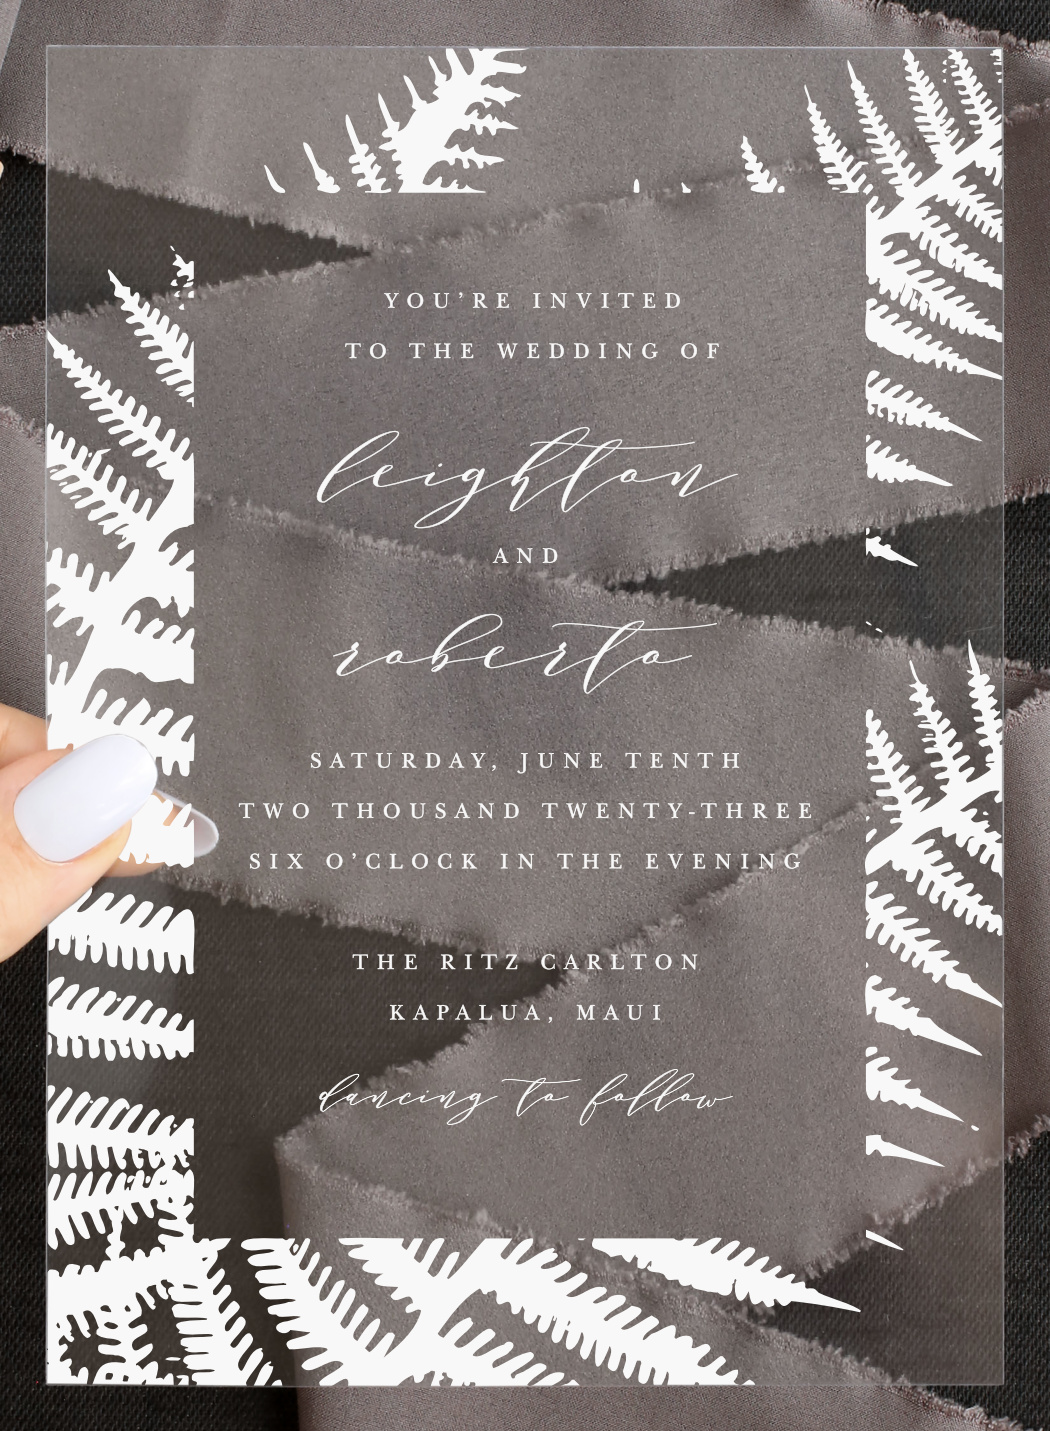 YOU'RE INVITED
TO THE WEDDING OF
leighton
AND
roberto
SATURDAY, JUNE TENTH
TWO THOUSAND TWENTY-THREE
SIX O'CLOCK IN THE EVENING
THE RITZ CARLTON
KAPALUA, MAUI
dancing to follow